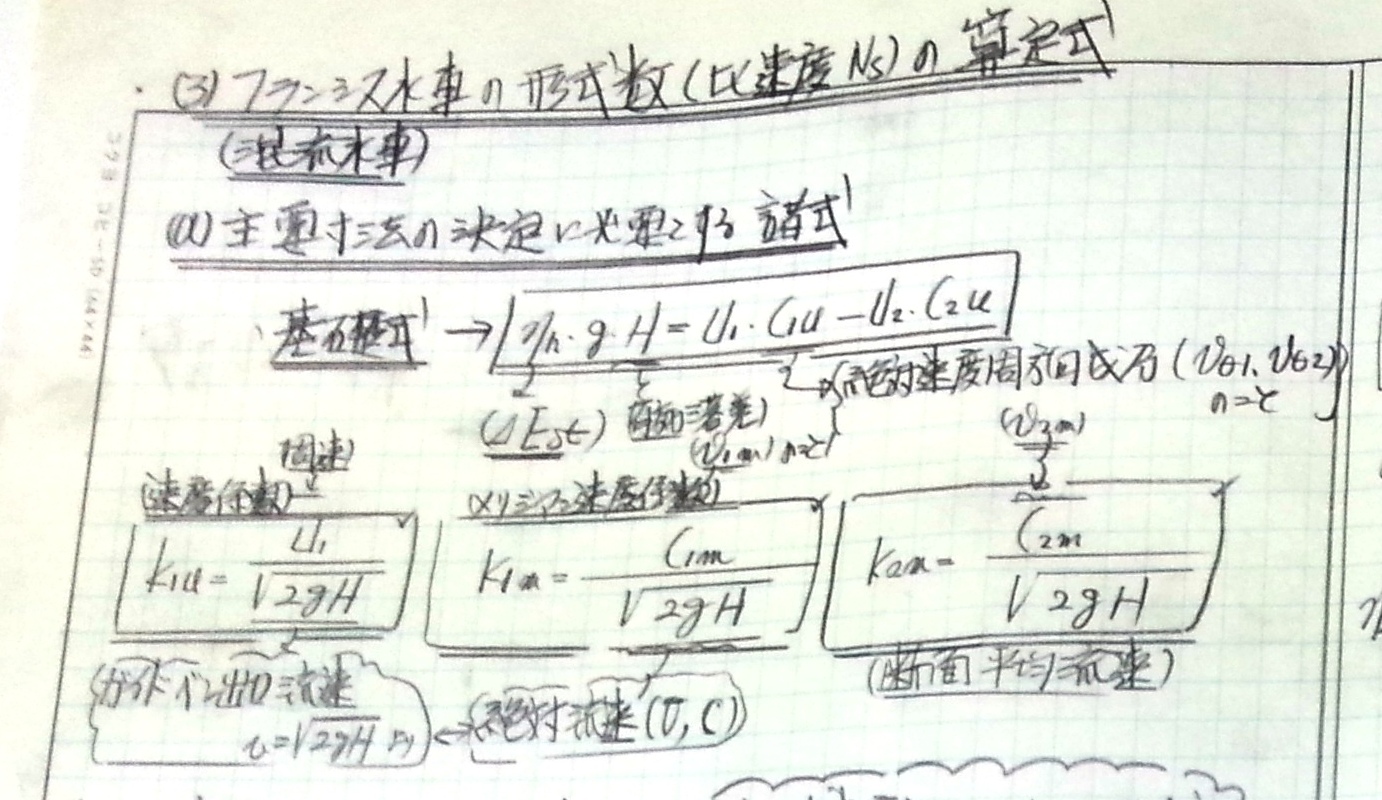 (3) フランシス水車の形式数(比速度 Ns)の算定式
(混流水車)
(a) 主要寸法の決定に必要とする諸式
基礎式 → ηh・g・H = U₁・C₁u − U₂・C₂u
絶対速度周方向成分 (Vθ1, Vθ2)
のこと
(ΔEst) 有効落差)
(V₁m) のこと
(V₂m)
周速)
(速度係数)
(メリジアン速度係数)
K₁u = U₁/√2gH
K₁m = C₁m/√2gH
K₂m = C₂m/√2gH
(断面平均流速)
(ガイドベン出口流速
v=√2gH より
絶対流速 (V, C)
コクヨ コヒー5D (44×44)